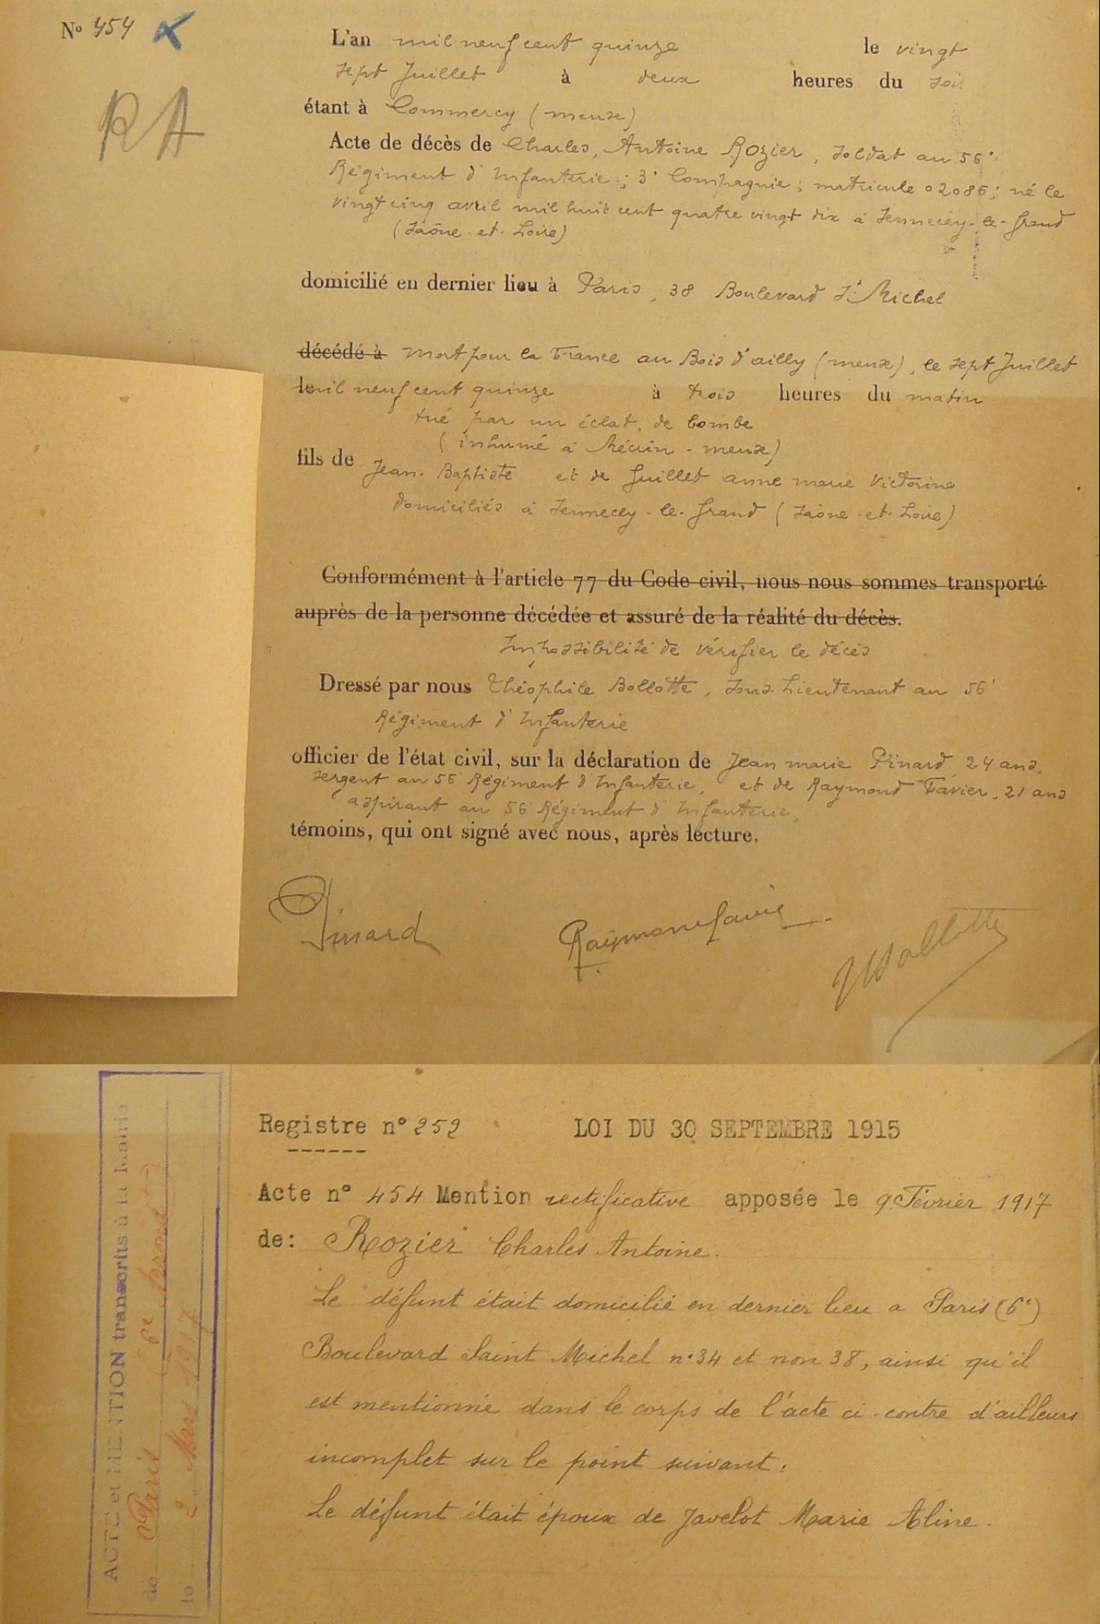 N° 454
RA
L'an mil neuf cent quinze le vingt
sept Juillet à deux heures du soir
étant à Commercy (meuse)
Acte de décès de Charles, Antoine Rozier, soldat au 56e
Régiment d'Infanterie; 3e Compagnie; matricule 02086; né le
vingt cinq avril mil huit cent quatre vingt dix à Sennecey-le-Grand
(Saône-et-Loire)
domicilié en dernier lieu à Paris, 38 Boulevard St Michel
décédé à mort pour la France au Bois d'ailly (meuse), le sept Juillet
le mil neuf cent quinze à trois heures du matin
tué par un éclat de bombe
(inhumé à Mécrin - meuse)
fils de Jean-Baptiste et de Guillet anne marie Victorine
domiciliés à Sennecey-le-Grand (Saône-et-Loire)
Conformément à l'article 77 du Code civil, nous nous sommes transporté
auprès de la personne décédée et assuré de la réalité du décès.
Impossibilité de vérifier le décès
Dressé par nous Théophile Bollotte, Sous-Lieutenant au 56e
Régiment d'Infanterie
officier de l'état civil, sur la déclaration de Jean marie Pinard, 24 ans,
sergent au 56e Régiment d'Infanterie, et de Raymond Favier, 21 ans
aspirant au 56e Régiment d'Infanterie,
témoins, qui ont signé avec nous, après lecture.
Pinard Raymond Favier Bollotte
Registre n° 252 LOI DU 30 SEPTEMBRE 1915
Acte n° 454 Mention rectificative apposée le 9 Février 1917
de: Rozier Charles Antoine.
Le défunt était domicilié en dernier lieu a Paris (6e)
Boulevard Saint Michel n° 34 et non 38, ainsi qu'il
est mentionné dans le corps de l'acte ci-contre d'ailleurs
incomplet sur le point suivant:
Le défunt était époux de Javelot Marie Aline.
ACTE et MENTION transcrits à la Mairie
de Paris (6e arrondt)
le 2 Mars 1917